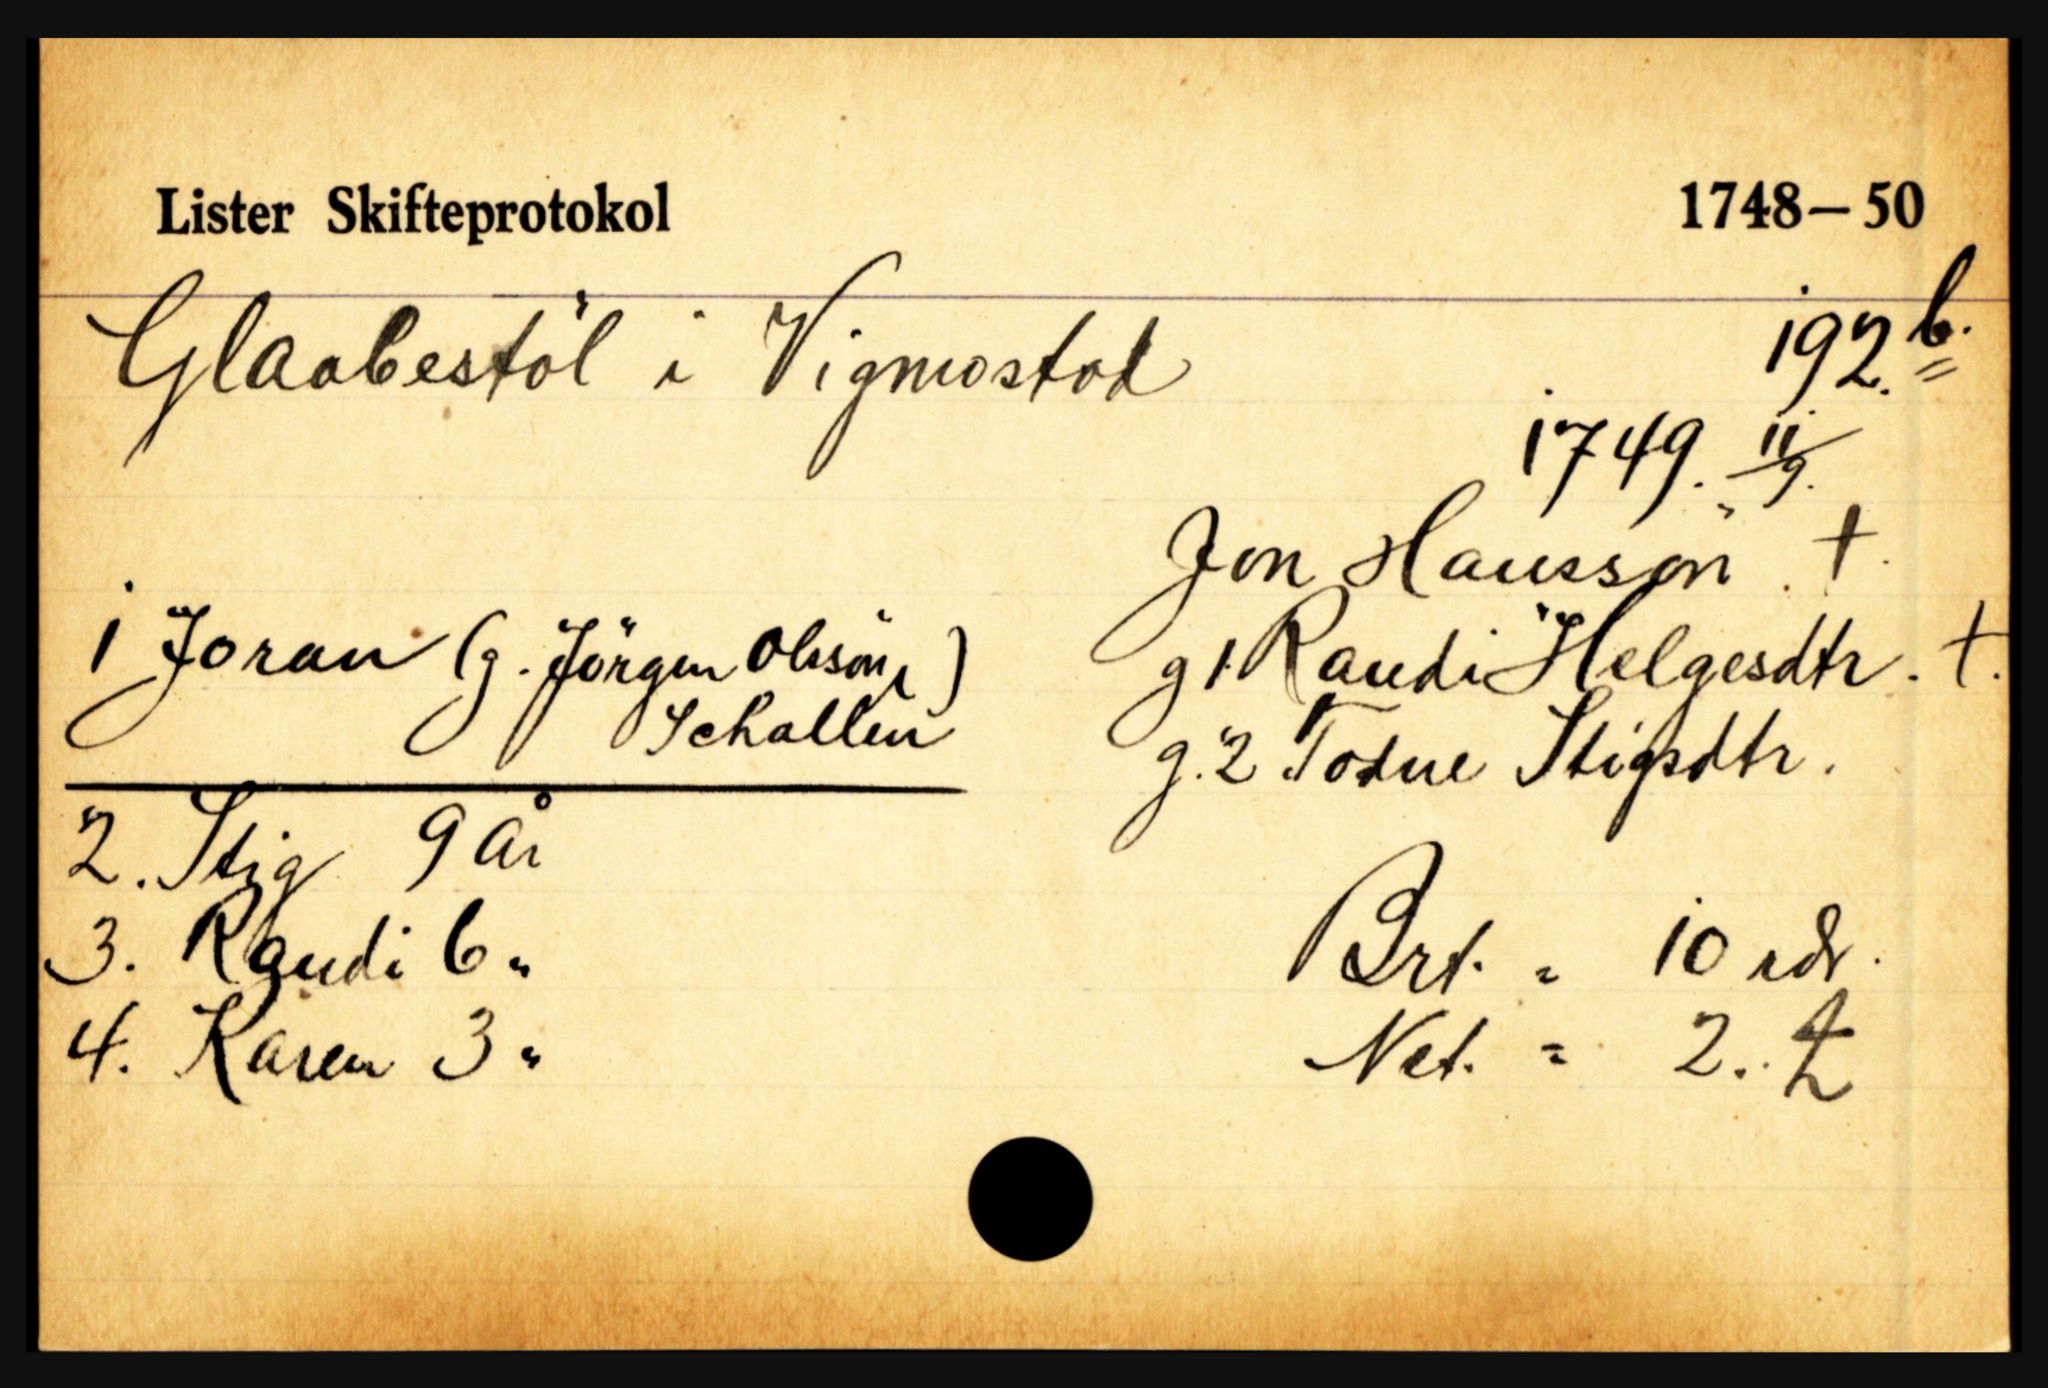 Lister Skifteprotokol 1748—50
Glaabestöl i Vigmostad 192.b.
1749. 11/9.
Jon Hansson †.
g 1. Randi Helgesdtr. †.
g. 2 Todne Stigsdtr.
1 Joran (g. Jörgen Olssön,
Schallen)
2. Stig 9 år
3. Randi 6 "
4. Karen 3 "
Brt. = 10 rdr.
Net. = 2..